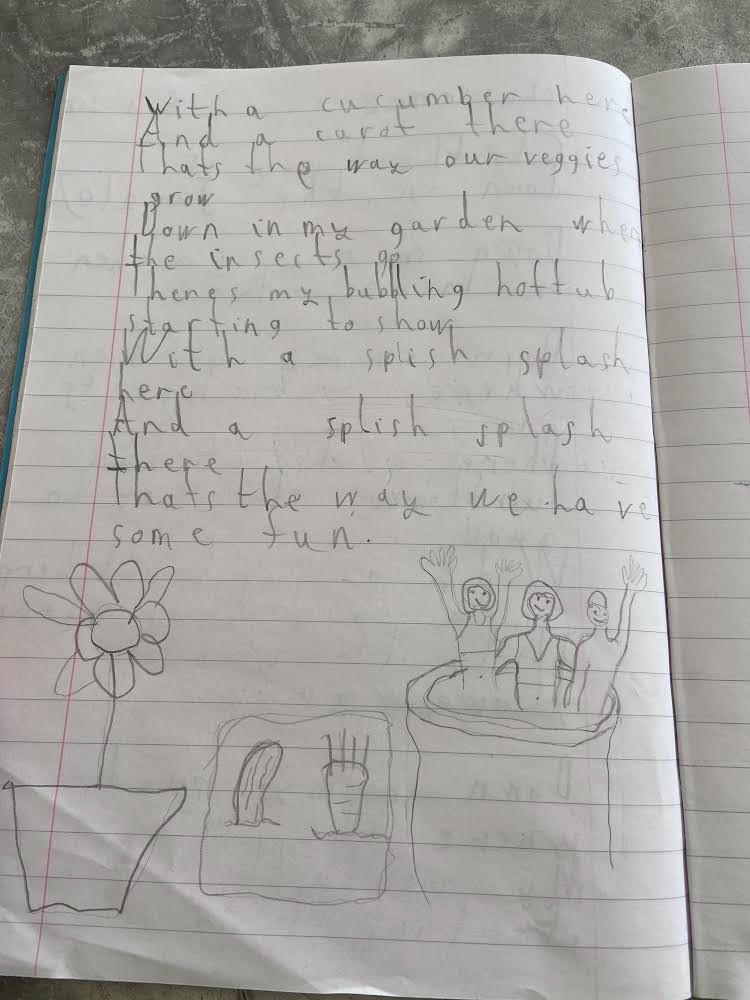 With a cucumber here
And a carot there
Thats the way our veggies
grow
Down in my garden when
the insects go
Theres my bubbling hottub
starting to show
With a splish splash
here
And a splish splash
there
Thats the way we have
some fun.